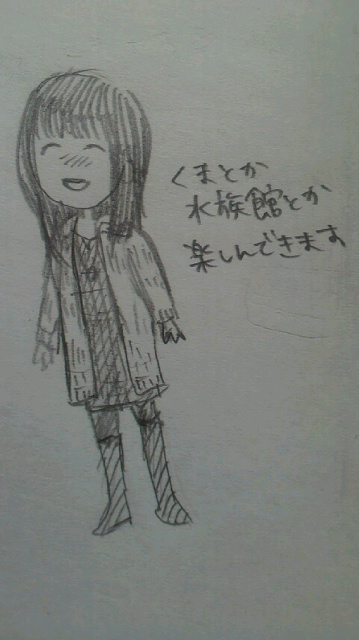 くまとか
水族館とか
楽しんできます